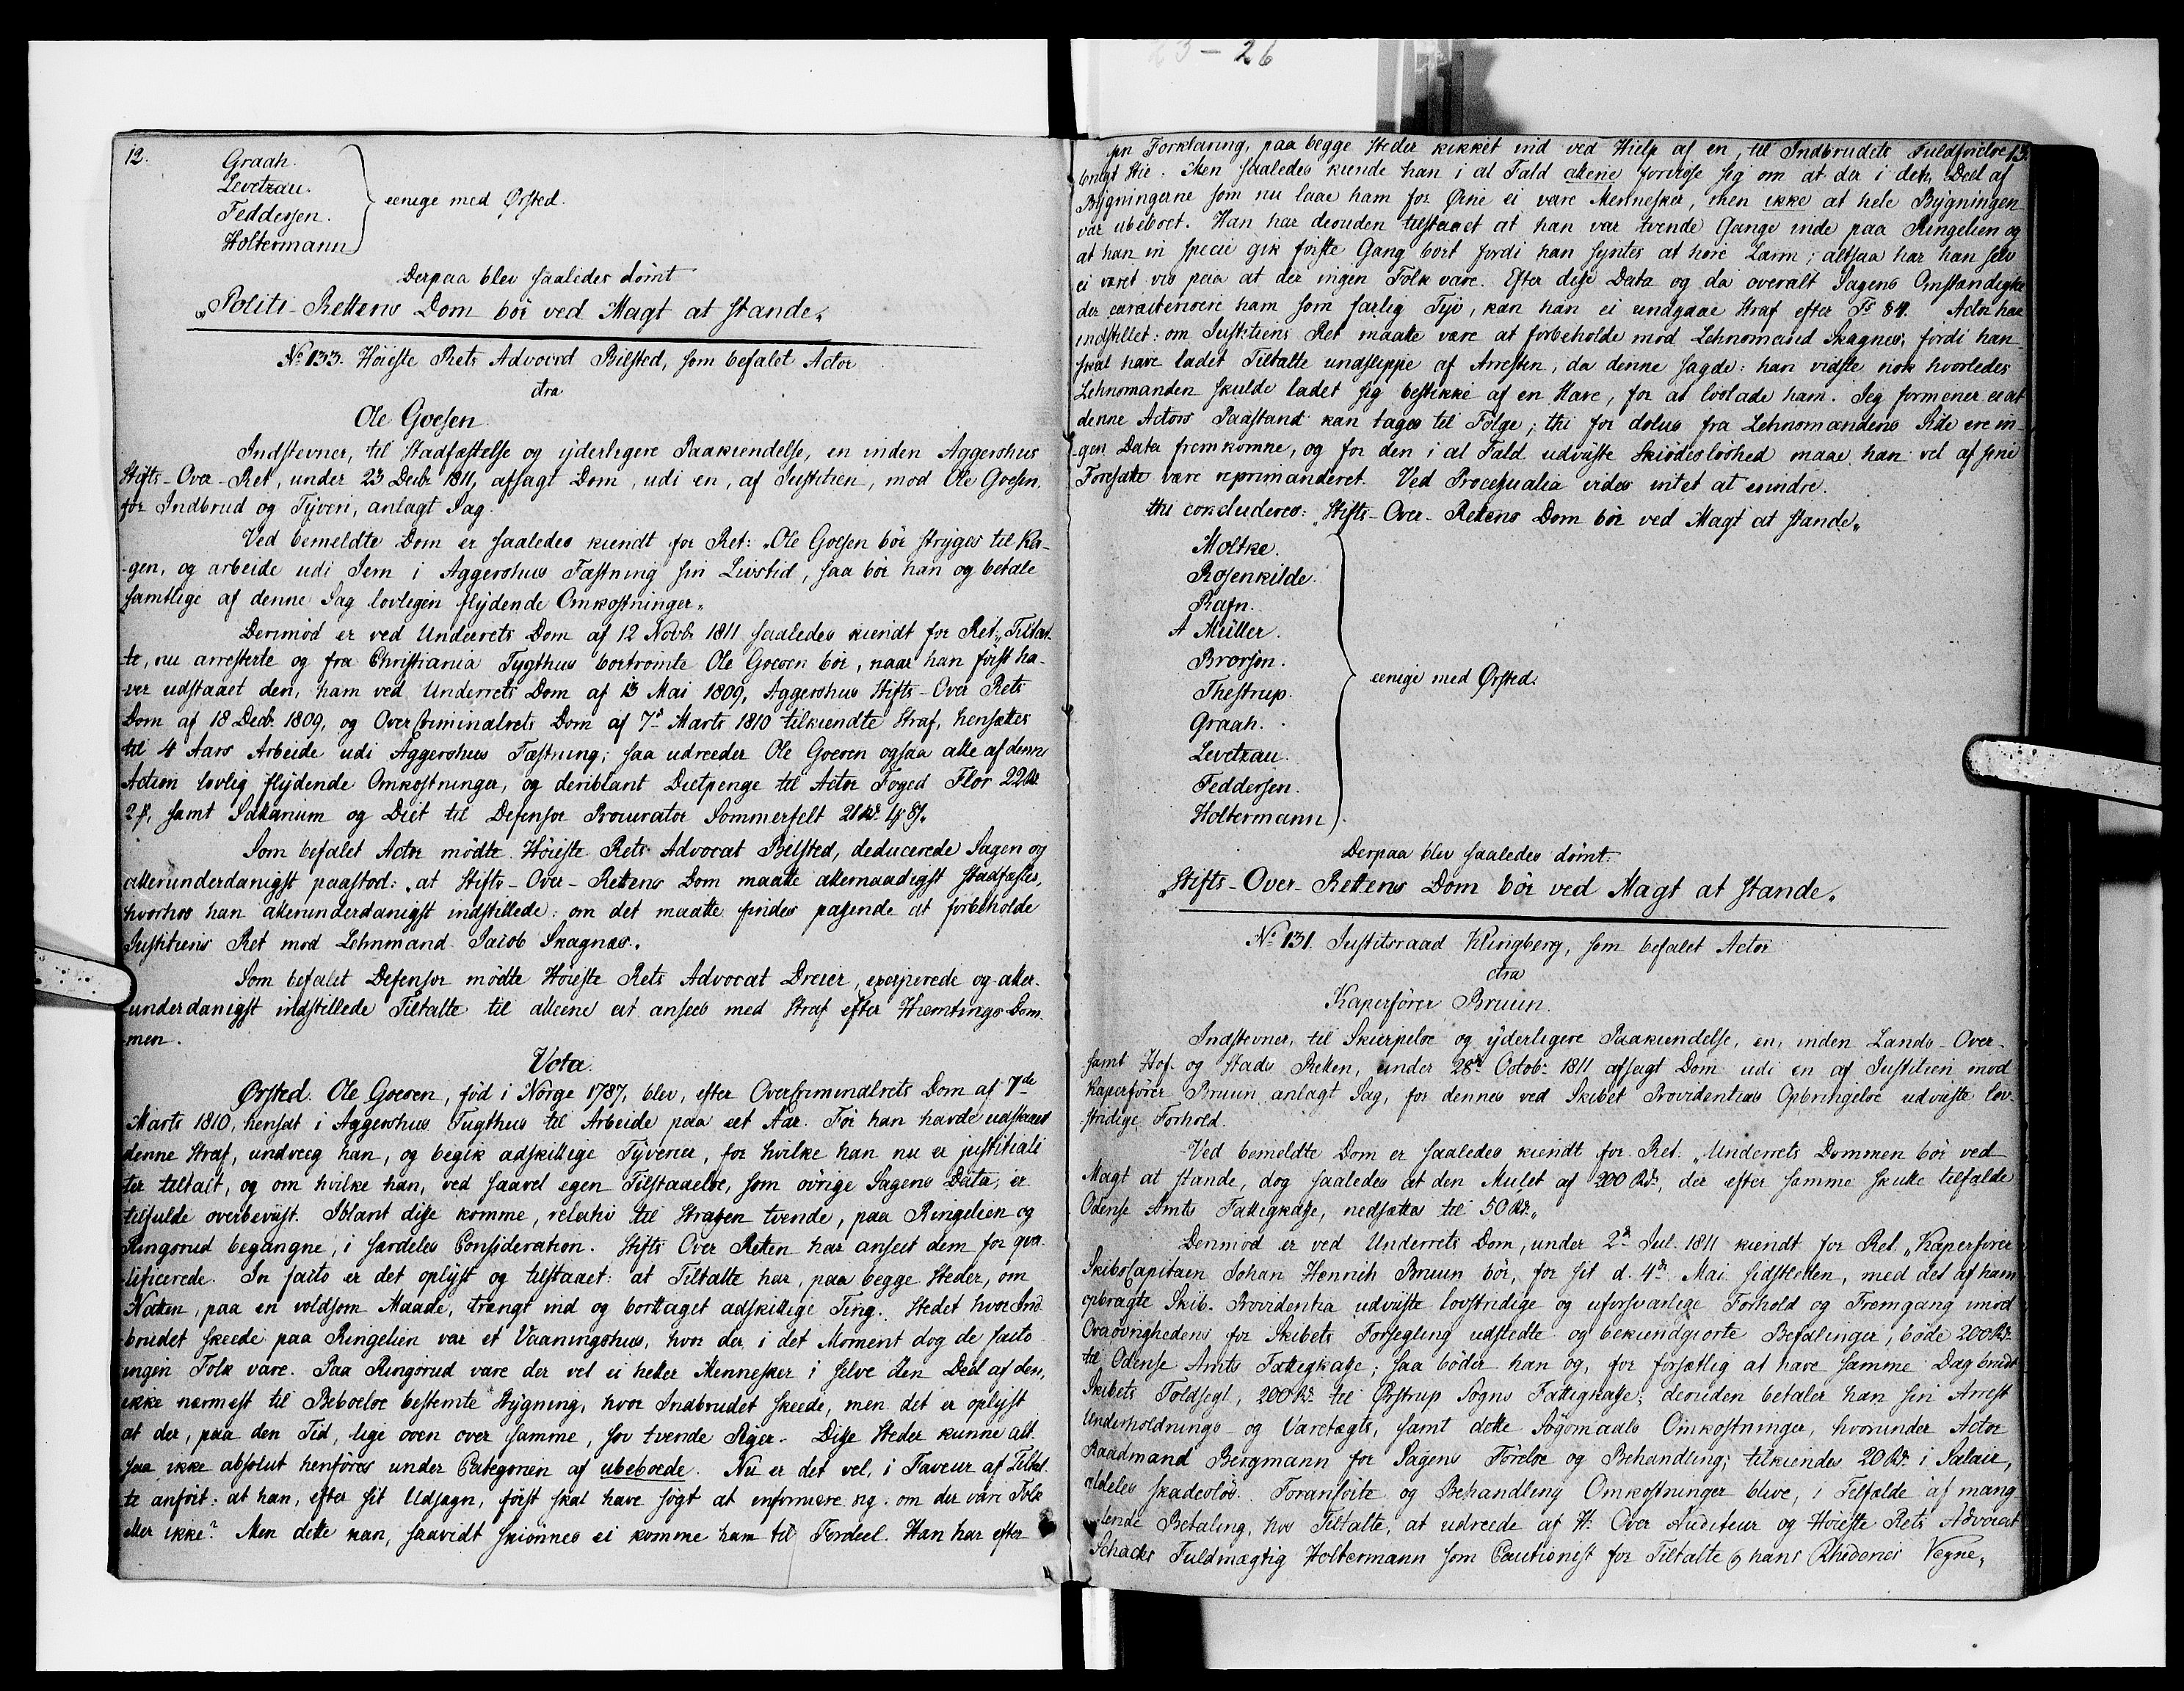 23-26
12.
Graah.
Levetzau.
Feddersen.
Holtermann
eenige med Ørsted.
Derpaa blev saaledes dømt
"Politi-Rettens Dom bör ved Magt at stande"
No 133. Höieste Rets Advocat Bilsted, som befalet Actor
ctra
Ole Goesen.
Indstevner, til Stadfæstelse og yderligere Paakiendelse, en inden Aggershus
Stifts-Over-Ret, under 23 Decbr 1811, afsagt Dom, udi en, af Justitien, mod Ole Goesen,
for Indbrud og Tyveri, anlagt Sag.
Ved bemeldte Dom er saaledes kiendt for Ret: "Ole Goesen bör stryges til Ka-
-gen, og arbeide udi Jern i Aggershus Fæstning sin Livstid, saa bör han og betale
samtlige af denne Sag lovligen flydende Omkostninger"
Derimod er ved Underrets Dom af 12 Novbr 1811 saaledes kiendt for Ret: "Tiltal-
-te, nu arresterte og fra Christiania Tygthus bortrömte Ole Goesen bör, naar han först ha-
-ver udstaaet den, ham ved Underrets Dom af 13 Mai 1809, Aggershus Stifts-Over Rets
Dom af 18 Decbr 1809, og OverCriminalrets Dom af 7de Marts 1810 tilkiendte Straf, hensættes
til 4 Aars Arbeide udi Aggershus Fæstning; saa udreeder Ole Goesen ogsaa alle af denne
Action lovlig flydende Omkostninger, og deriblant Dietpenge til Actor Foged Flor 22 Rd
2 ß, samt Sallarium og Diet til Defensor Procurator Sommerfelt 21 Rd. 4 ß 8/."
Som befalet Actor mödte Höieste Rets Advocat Bilsted, deducerede Sagen og
allerunderdanigst paastod: "at Stifts-Over-Rettens Dom maatte allernaadigst stadfæstes,
hvorhos han allerunderdanigst indstillede: om det maatte findes passende at forbeholde
Justitiens Ret mod Lehnmand Jacob Skagnæs."
Som befalet Defensor mödte Höieste Rets Advocat Dreier, exciperede og aller-
-underdanigst indstillede Tiltalte til alleene at ansees med Straf efter Hiemtings Dom-
-men.
Vota.
Ørsted. Ole Goesen, föd i Norge 1787, blev, efter OverCriminalrets Dom af 7de
Marts 1810, hensat i Aggershus Tugthus til Arbeide paa eet Aar. För han havde udstaaet
denne Straf, undveeg han, og begik adskillige Tyverier, for hvilke han nu er justitiali-
ter tiltalt, og om hvilke han, ved saavel egen Tilstaaelse, som övrige Sagens Data, er
tilfulde overbeviist. Iblant disse komme, relativ til Straffen tvende, paa Ringelien og
Ringsrud begangne, i særdeles Consideration. Stifts Over Retten har anseet dem for qva-
-lificerede. In facto er det oplyst og tilstaaet: at Tiltalte har, paa begge Steder, om
Natten, paa en voldsom Maade, trængt ind og borttaget adskillige Ting. Stedet hvor Ind-
-brudet skeede paa Ringelien var et Vaaningshus, hvor der i det Moment dog de facto
ingen Folk vare. Paa Ringsrud vare der vel ei heller Mennesker i selve den Deel af den,
ikke nærmest til Beboelse bestemte Bygning, hvor Indbrudet skeede, men det er oplyst
at der, paa den Tid, lige oven over samme, sov tvende Piger. Disse Steder kunne alt-
saa ikke absolut henföres under Categorien af ubeboede. Nu er det vel, i Faveur af Tiltal-
te anfört: at han, efter sit Udsagn, först skal have sögt at informere sig om der vare Folk
eller ikke? Men dette kan, saavidt skiönnes ei komme ham til Fordeel. Han har efter
13.
sin Forklaring, paa begge Steder kikket ind ved Hielp af en, til Indbrudets Fuldförelse
brugt Stie. Men saaledes kunde han i al Fald allene forvisse sig om at der i den, Deel af
Bygningerne som nu laae ham for Öine ei vare Mennesker, men ikke at hele Bygningen
var ubeboet. Han har desuden tilstaaet at han var tvende Gange inde paa Ringelien og
at han in specie gik förste Gang bort fordi han syntes at höre Larm; altsaa har han selv
ei været vis paa at der ingen Folk vare. Efter disse Data og da overalt Sagens Omstændighe-
der caracterisere ham som farlig Tyv, kan han ei undgaae Straf efter Fr. 89. Actor har
indstillet: om Justitiens Ret maatte være at forbeholde mod Lehnsmand Skagnæs, fordi han
skal have ladet Tiltalte undslippe af Arresten, da denne sagde: han vidste nok hvorledes
Lehnsmanden skulde ladet sig bestikke af en Mare, for at löslade ham. Jeg formener ei at
denne Actors Paastand kan tages til Fölge; thi for dolus fra Lehnsmandens Side ere in-
-gen Data fremkomne, og for den i al Fald udviiste Skiödeslöshed maae han vel af sine
Foresatte være reprimanderet. Ved Procesualia vides intet at erindre.
thi concluderes: "Stifts-Over-Rettens Dom bör ved Magt at stande"
Moltke.
Rosenkilde.
Rafn.
A Müller.
Brorson.
Thestrup.
Graah.
Levetzau.
Feddersen.
Holtermann
eenige med Ørsted.
Derpaa blev saaledes dömt.
"Stifts-Over-Rettens Dom bör ved Magt at stande"
No 131. Justitsraad Klingberg, som befalet Actor
ctra
Kaperförer Bruun.
Indstevner, til Skierpelse og yderligere Paakiendelse, en, inden Lands-Over-
samt Hof- og Stads Retten, under 28de Octobr 1811 afsagt Dom udi en af Justitien mod
Kaperförer Bruun anlagt Sag, for dennes ved Skibet Providentias Opbringelse udviiste lov-
stridige Forhold.
Ved bemeldte Dom er saaledes kiendt for Ret. "Underrets Dommen bör ved
Magt at stande, dog saaledes at den Mulct af 200 Rd., der efter samme skulle tilfalde
Odense Amts Fattigkasse, nedsættes til 50 Rd."
Derimod er ved Underrets Dom, under 2de Jul. 1811 kiendt for Ret "Kaperförer
SkibsCapitain Johan Henrich Bruun bör, for sit d. 4de Mai sidstleden, med det af ham
opbragte Skib Providentia udviiste lovstridige og uforsvarlige Forhold og Fremgang imod
Övrighedens for Skibets Forsegling udstedte og bekiendgiorte Befalinger, böde 200 Rd.
til Odense Amts Fattigkasse; saa böder han og, for forsætlig at have samme Dag brudt
Skibets Toldsegl, 200 Rd. til Østrup Sogns Fattigkasse; desuden betaler han sin Arrest
Underholdnings- og Varetægts, samt dette Sögsmaals Omkostninger, hvorunder Actor
Raadmand Bergmann for Sagens Förelse og Behandling, tilkiendes 20 Rd. i Salair,
aldeles skadeslös. Foranförte og Behandling Omkostninger blive, i Tilfælde af mang-
lende Betaling, hos Tiltalte, at udreede af Hr. Over Auditeur og Höieste Rets Advocat
Schacks Fuldmægtig Holtermann som Cautionist for Tiltalte og hans Rhederies Vegne"